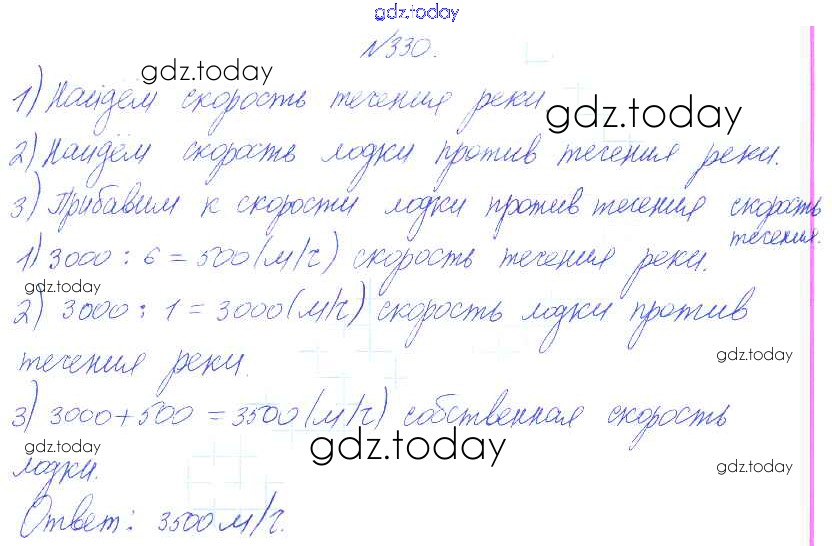 gdz.today
№330.
gdz.today
1) Найдём скорость течения реки
gdz.today
2) Найдём скорость лодки против течения реки.
3) Прибавим к скорости лодки против течения скорость
течения.
1) 3000 : 6 = 500 (м/ч) скорость течения реки.
gdz.today
2) 3000 : 1 = 3000 (м/ч) скорость лодки против
gdz.today
течения реки.
3) 3000+500 = 3500 (м/ч) собственная скорость
gdz.today
gdz.today
gdz.today
лодки.
Ответ: 3500 м/ч.